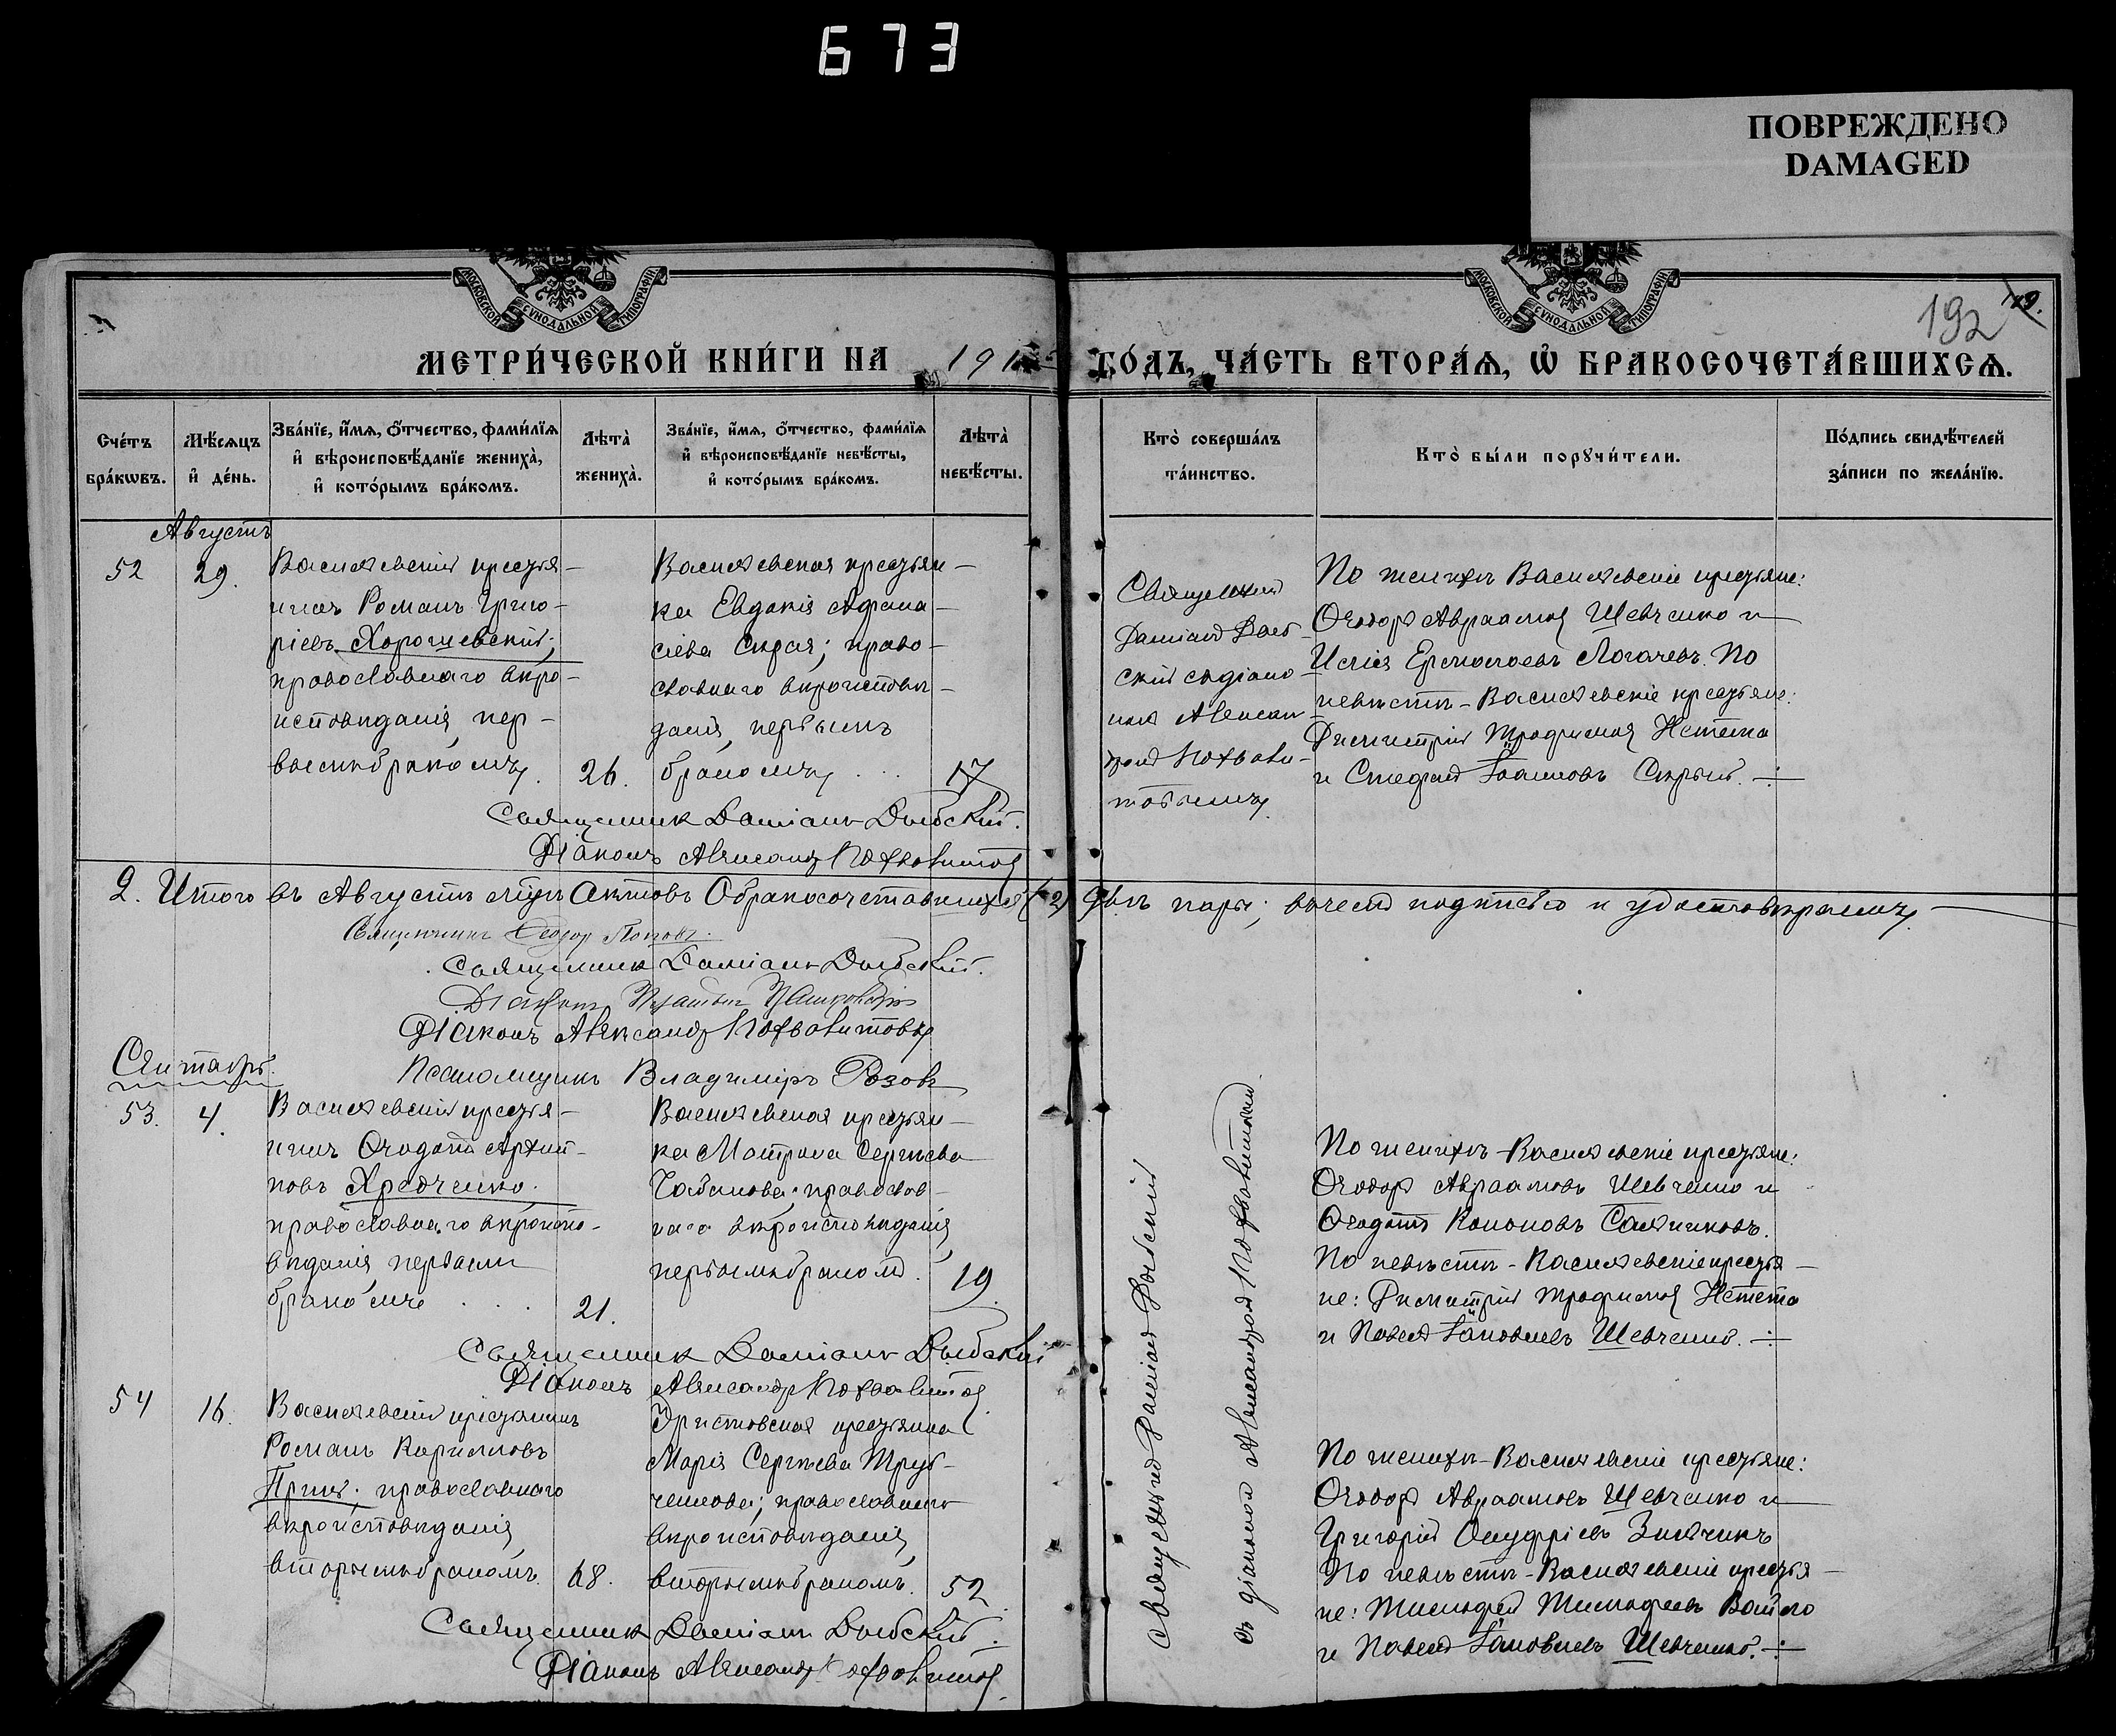 673
ПОВРЕЖДЕНО
DAMAGED
МОСКОВСКОЙ СѴНОДАЛЬНОЙ ТИПОГРАФІИ
МОСКОВСКОЙ СѴНОДАЛЬНОЙ ТИПОГРАФІИ
192
МЕТРИ́ЧЕСКОЙ КНИ́ГИ НА 191
ГО́ДЪ, ЧА́СТЬ ВТОРА́Ѧ, Ѡ҆ БРАКОСОЧЕТА́ВШИХСѦ.
Сче́тъ бра́кѡвъ.
Мѣ́сѧцъ и҆ де́нь.
Зва́нїе, и҆́мѧ, о҆́тчество, фами́лїѧ
и҆ вѣроисповѣ́данїе жениха̀,
и҆ кото́рымъ бра́комъ.
Лѣта̀ жениха̀.
Зва́нїе, и҆́мѧ, о҆́тчество, фами́лїѧ
и҆ вѣроисповѣ́данїе невѣ́сты,
и҆ кото́рымъ бра́комъ.
Лѣта̀ невѣ́сты.
Кто̀ соверша́лъ
та́инство.
Кто̀ бы́ли порꙋчи́тели.
По́дпись свидѣ́телей
за́писи по жела́нїю.
Августъ
52
29.
Васильевскій крестья-
нинъ Романъ Григо-
ріевъ Хорошевскій;
православнаго вѣро-
исповѣданія, пер-
вымъ бракомъ.
26.
Васильевская крестьян-
ка Евдокія Афана-
сіева Скрая; право-
славнаго вѣроисповѣ-
данія, первымъ
бракомъ
17
Священникъ
Даміанъ Дыб-
скій съ діако-
номъ Алексан-
дромъ Похвали-
товымъ
По женихѣ Васильевскіе крестьяне:
Ѳеодоръ Авраамовъ Шевченко и
Исаія Ермолаевъ Логачевъ. По
невѣстѣ - Васильевскіе крестьяне:
Димитрій Трофимовъ Нетета
и Стефанъ Іоанновъ Скрый.
Священникъ Даміанъ Дыбскій.
Діаконъ Александръ Похвалитовъ
2. Итого въ Августѣ м-цѣ актовъ о бракосочетавшихся (2) двѣ пары; въ чемъ подписью и удостовѣряемъ.
Священникъ Ѳеодоръ Поповъ.
Священникъ Даміанъ Дыбскій.
Діаконъ
Діаконъ Александръ Похвалитовъ
Псаломщикъ Владиміръ Розовъ
Сентябрь.
53.
4.
Васильевскій крестья-
нинъ Ѳеодотъ Архип-
повъ Хредченко.
православнаго вѣроиспо-
вѣданія, первымъ
бракомъ
21.
Васильевская крестьян-
ка Матрона Сергѣева
Чабанова; православ-
наго вѣроисповѣданія,
первымъ бракомъ.
19.
По женихѣ - Васильевскіе крестьяне:
Ѳеодоръ Авраамовъ Шевченко и
Ѳеодотъ Кононовъ Сальниковъ.
По невѣстѣ - Васильевскіе крестья-
не: Димитрій Трофимовъ Нетета
и Павелъ Іаковлевъ Шевченко.
Священникъ Даміанъ Дыбскій
Діаконъ Александръ Похвалитовъ
54
16.
Васильевскій крестьянинъ
Романъ Кирилловъ
православнаго
вѣроисповѣданія,
вторымъ бракомъ.
68.
крестьянка
Марія Сергѣева Труб-
чанова; православнаго
вѣроисповѣданія,
вторымъ бракомъ.
52
По женихѣ - Васильевскіе крестьяне:
Ѳеодоръ Авраамовъ Шевченко и
Григорій Онуфріевъ
По невѣстѣ - Васильевскіе крестья-
не: Тимофей Тимофеевъ
и Павелъ Іаковлевъ Шевченко.
Священникъ Даміанъ Дыбскій
съ діакономъ Александромъ Похвалитовымъ
Священникъ Даміанъ Дыбскій.
Діаконъ Александръ Похвалитовъ.